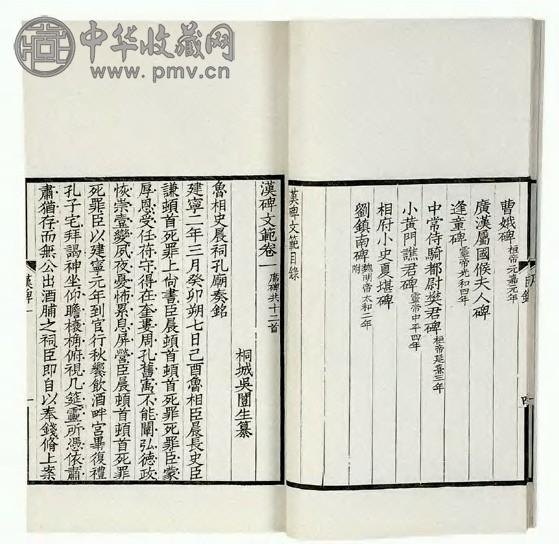 中华收藏网
www.pmv.cn
曹娥碑 桓帝元嘉元年
廣漢屬國候夫人碑
逢童碑 靈帝光和四年
中常侍騎都尉樊君碑 桓帝延熹三年
小黃門譙君碑 靈帝中平四年
相府小史夏堪碑
劉鎮南碑 魏明帝太和二年附
漢碑文範目錄
漢碑文範卷一 廟碑共十二首
桐城吳闓生纂
魯相史晨祠孔廟奏銘
建寧二年三月癸卯朔七日己酉魯相臣晨長史臣
謙頓首死罪上尚書臣晨頓首頓首死罪死罪臣蒙
厚恩受任符守得在奎婁周孔舊寓不能闡弘德政
恢崇壹變夙夜憂怖累息屏營臣晨頓首頓首死罪
死罪臣以建寧元年到官行秋饗飲酒畔宮畢復禮
孔子宅拜謁神坐仰瞻榱桷俯視几筵靈所憑依肅
肅猶存而無公出酒脯之祠臣即自以奉錢脩上案
漢碑一